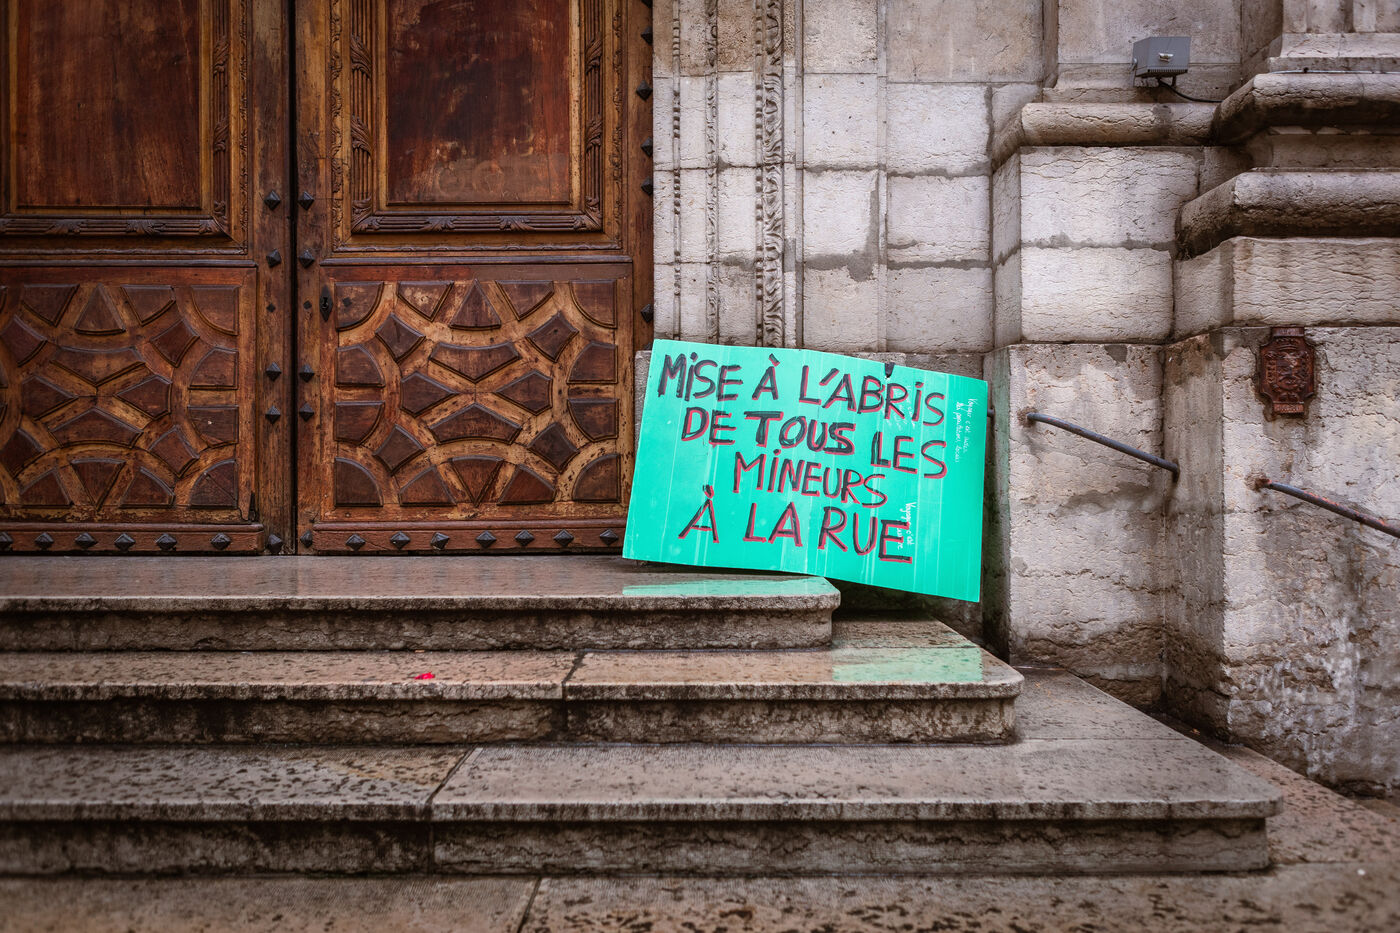 MISE À L'ABRIS
DE TOUS LES
MINEURS
À LA RUE
Voyager c'est